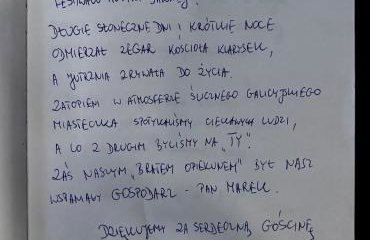 FESTIWALU
DŁUGIE SŁONECZNE DNI I KRÓTKIE NOCE
ODMIERZAŁ ZEGAR KOŚCIOŁA KLARYSEK,
A JUTRZNIA ZRYWAŁA DO ŻYCIA.
ZATOPIENI W ATMOSFERZE ŚLICZNEGO GALICYJSKIEGO
MIASTECZKA SPOTYKALIŚMY CIEKAWYCH LUDZI,
A CO Z DRUGIM BYLIŚMY NA „TY".
ZAŚ NASZYM „BRATEM OPIEKUNEM" BYŁ NASZ
WSPANIAŁY GOSPODARZ - PAN MAREK.
DZIĘKUJEMY ZA SERDECZNĄ GOŚCINĘ